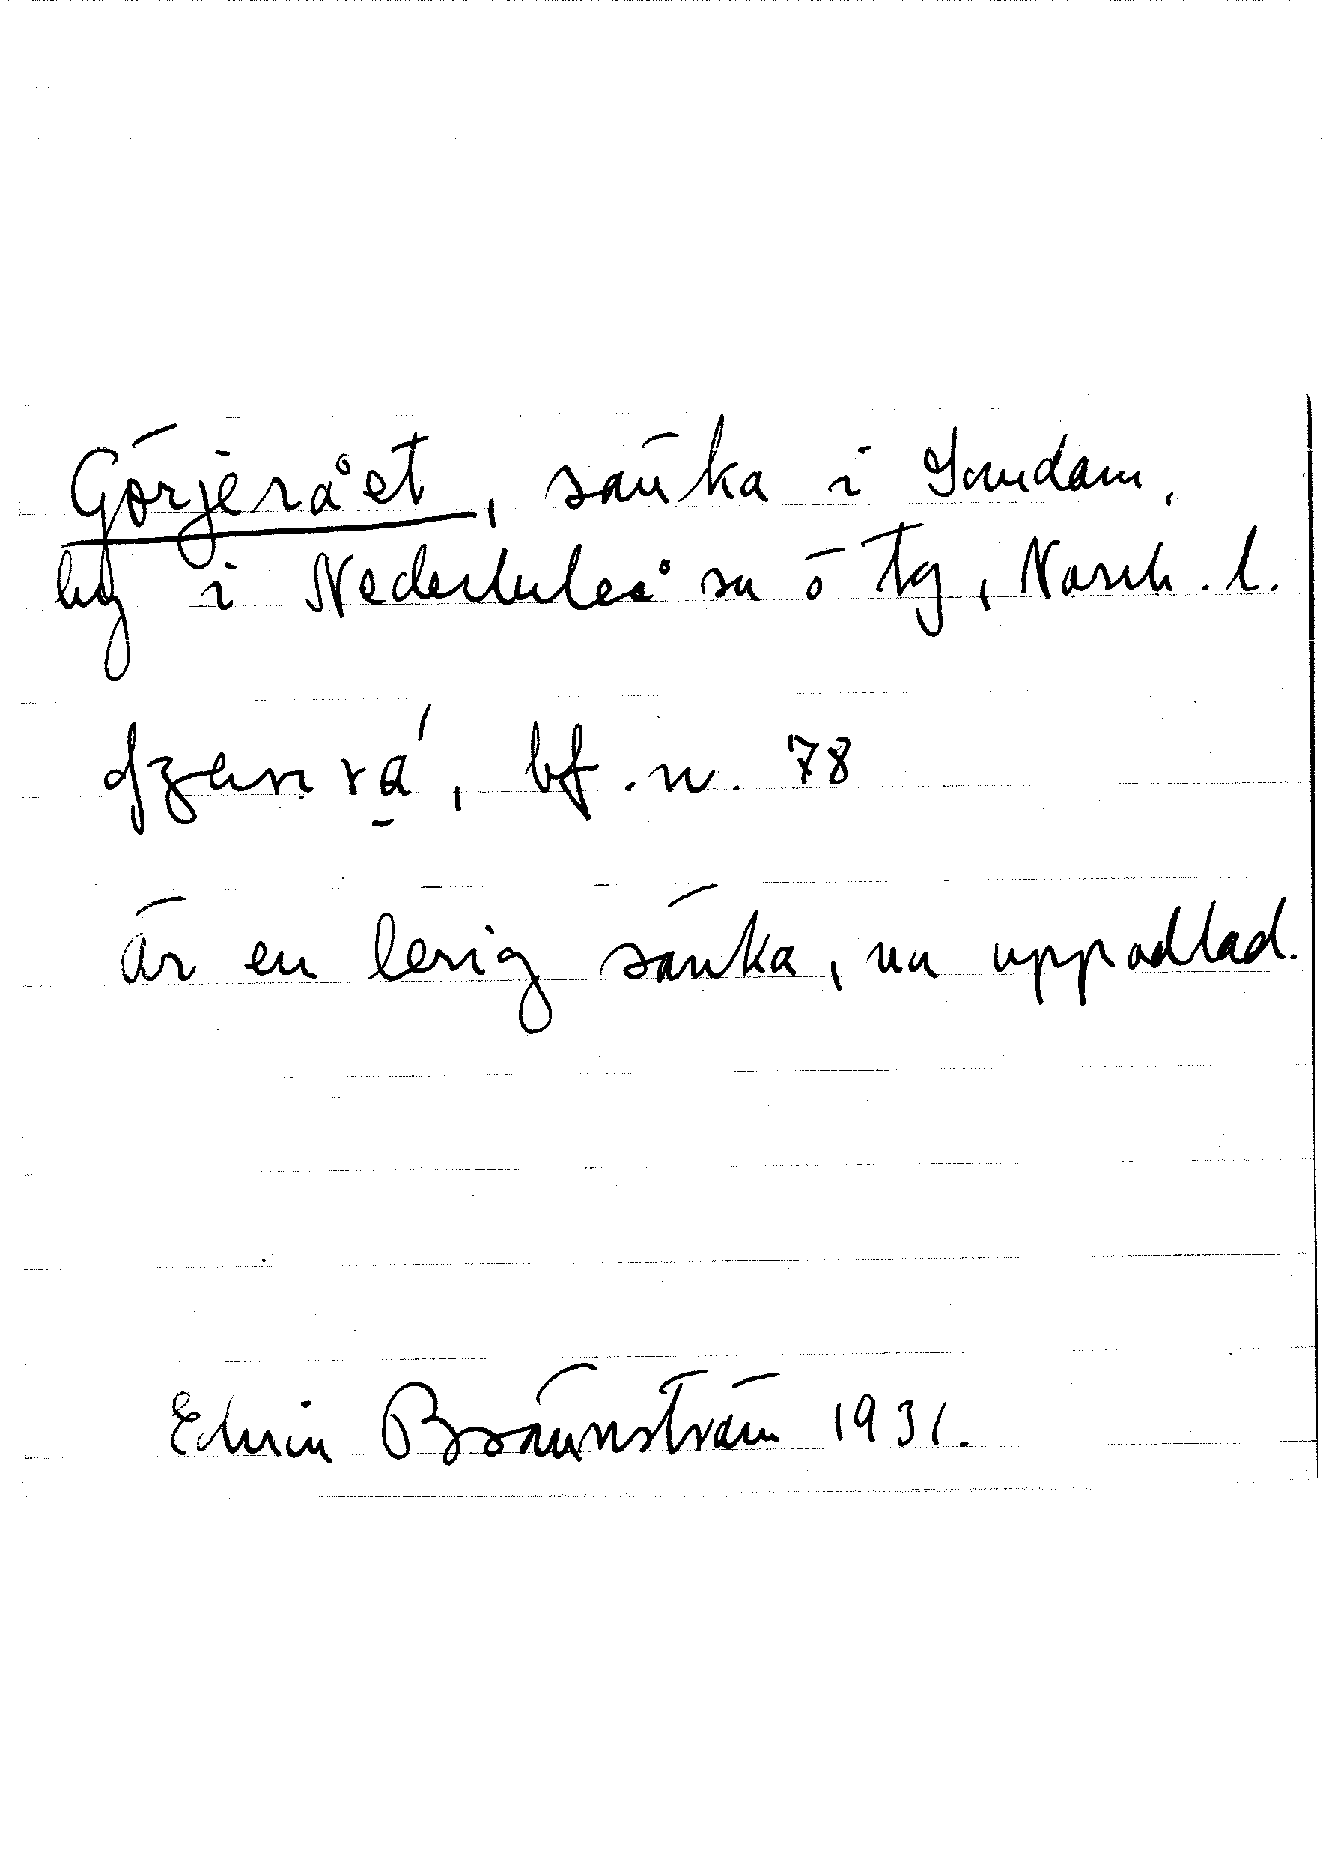 Görjerået, sänka i Sundom,
by i Nederluleå sn o tg, Norrb. l.
bf. n. 78
är en lerig sänka, nu uppodlad.
Edvin Brännström 1931.